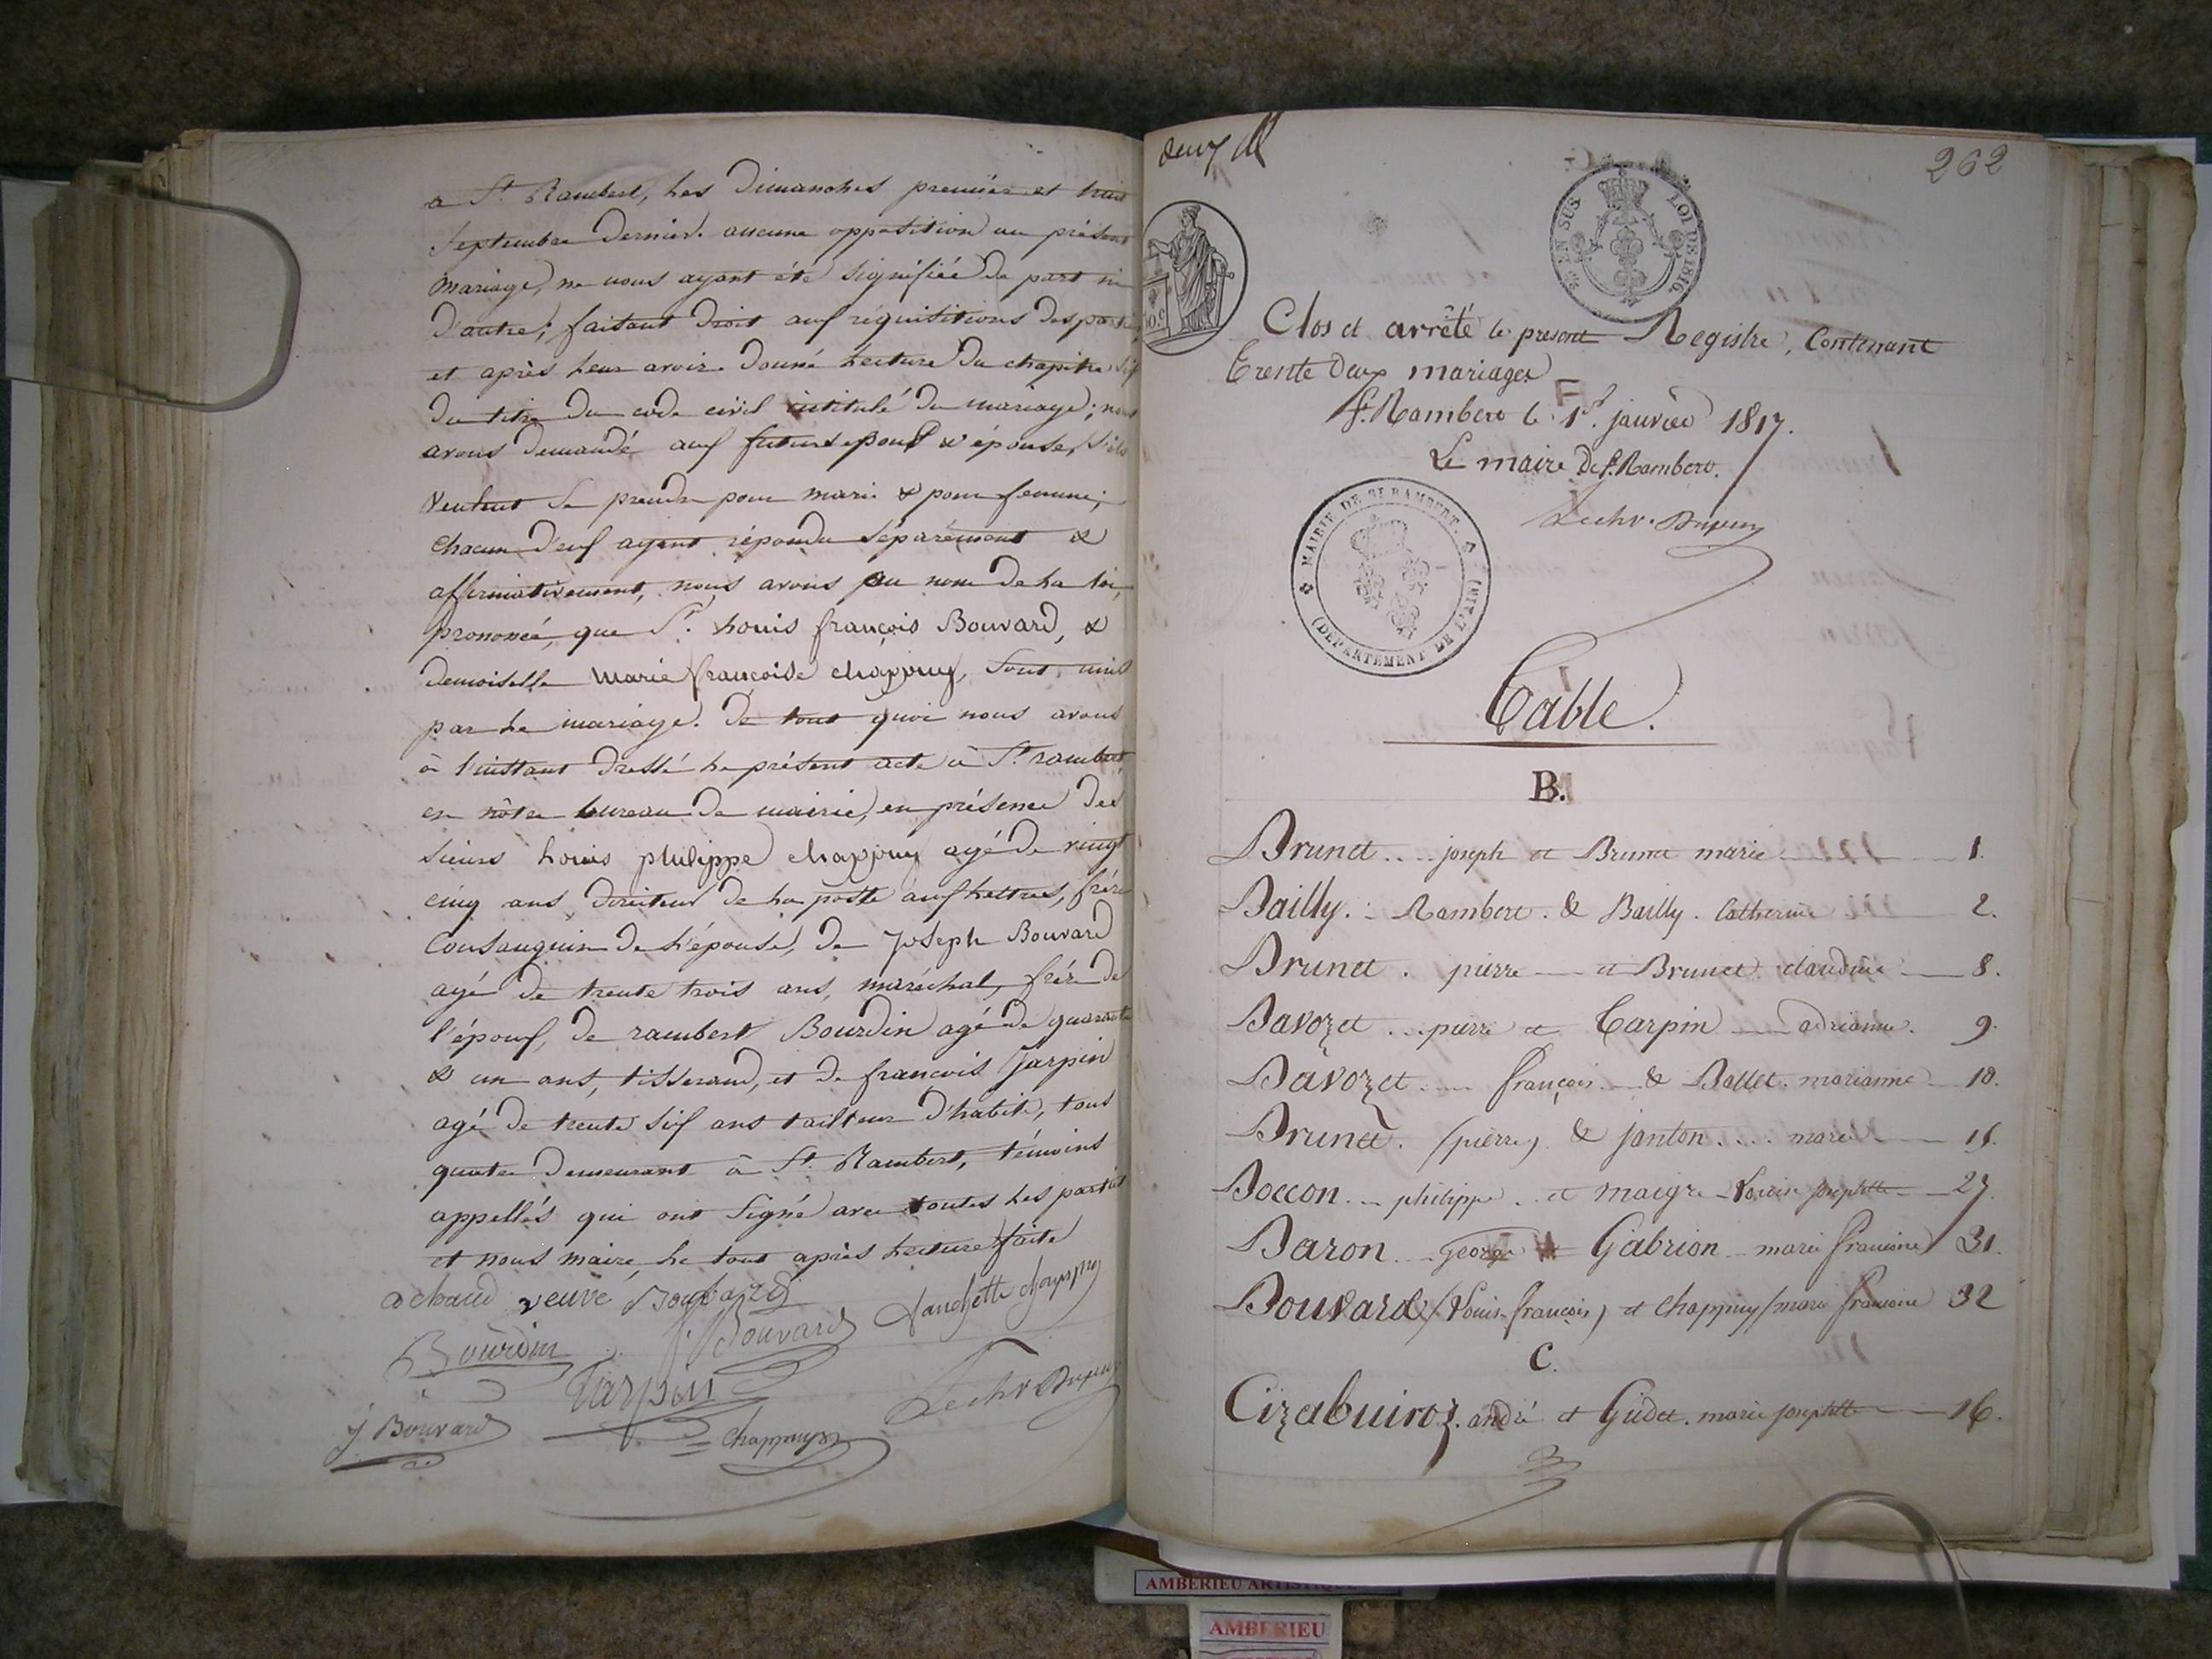 a St. Rambert, les Dimanches premier et huit
Septembre dernier. aucune opposition au présent
mariage, ne nous ayant été signifiée de part ni
d'autre; faisant droit aux réquisitions des parties
et après leur avoir donné lecture du chapitre six
du titre du code civil intitulé du mariage; nous
avons demandé aux futurs epoux & épouse, s'ils
veulent se prendre pour mari & pour femme;
chacun d'eux ayant répondu séparément &
affirmativement, nous avons au nom de la loi,
prononcé, que Sr. Louis françois Bouvard, &
demoiselle Marie françoise chappuy, sont unis
par le mariage. de tout quoi nous avons
à l'instant dressé le présent acte à St. rambert
en nôtre bureau de mairie, en présence des
sieurs Louis philippe chappuy agé de vingt
cinq ans, directeur de la poste aux lettres, frère
consanguin de l'épouse, de Joseph Bouvard
agé de trente trois ans, maréchal, frère de
l'époux, de rambert Bourdin agé de quarante
& un ans, tisserand, et de francois Tarpin
agé de trente six ans tailleur d'habits, tous
quatre demeurant à St. Rambert, témoins
appellés qui ont signé avec toutes les parties
et nous maire, le tout après lecture faite
veuve Bouvard
chappuy
Bourdin
Bouvard
Tarpin
J Bouvard
Chappuys
deux
262
EN SUS LOI DE 1816.
Clos et arrêté le present Registre, Contenant
Trente deux mariages
St. Rambert le 1er. janvier 1817.
Le maire de St. Rambert.
MAIRIE DE ST RAMBERT.
(DEPARTEMENT DE L'AIN)
Table.
B.
Brunet .... joseph et Brunet marie 1.
Bailly. Rambert. & Bailly. Catherine 2.
Brunet. pierre et Brunet claudine 8.
Bavozet ... pierre et Tarpin adrianne. 9.
Bavozet .... françois & Ballet. marianne 10.
Brunet. (pierre) & janton .... marie
Boccon. philippe. et maigre Louise josephte 27.
Baron. George et Gabrion marie francoise 31.
Bouvard (Louis francois) et chappuy (marie francoise 32
C.
Cizabuiroz. andré et Gudet. marie josephte 16.
AMBERIEU ARTISTIQUE
AMBERIEU